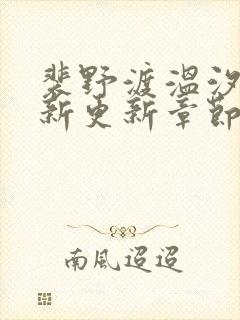 裴野渡温汐
新更新章節
南風迢迢